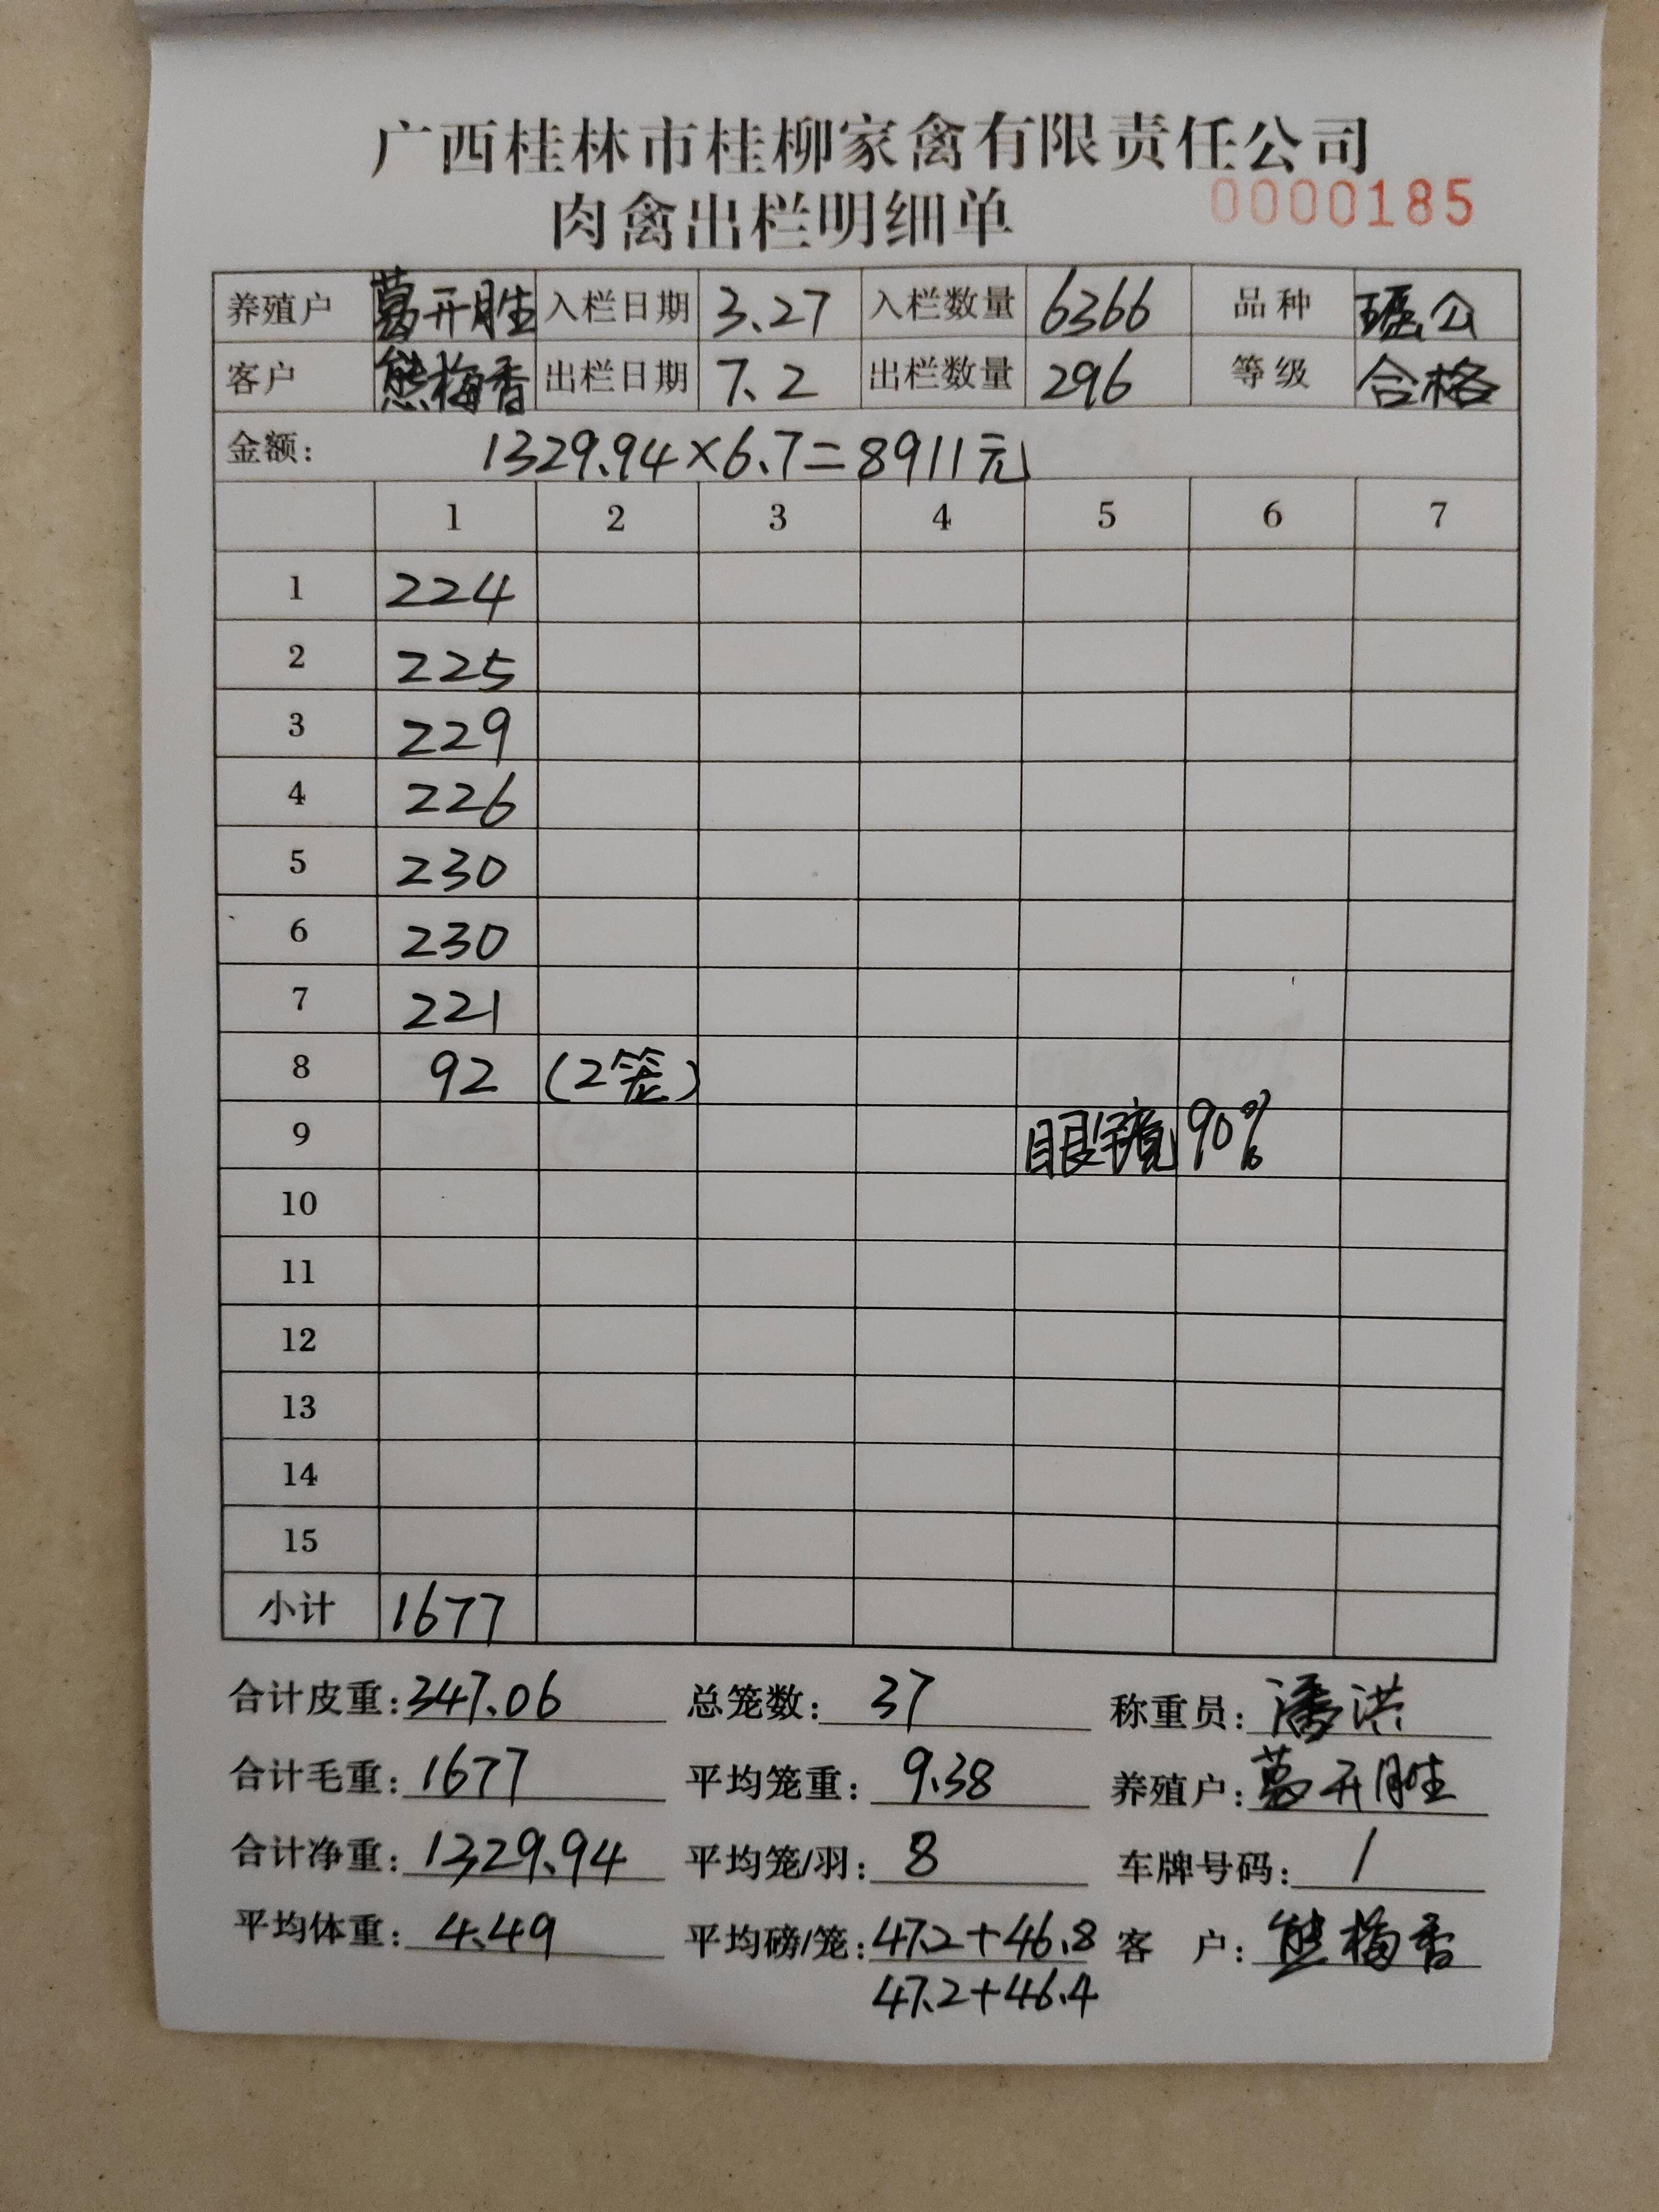 广西桂林市桂柳家禽有限责任公司
肉禽出栏明细单 0000185
养殖户 葛开胜 入栏日期 3.27 入栏数量 6366 品种 瑶公
客户 熊梅香 出栏日期 7.2 出栏数量 296 等级 合格
金额: 1329.94×6.7=8911元
1 2 3 4 5 6 7
1 224
2 225
3 229
4 226
5 230
6 230
7 221
8 92 (2笼)
9 眼镜 90%
10
11
12
13
14
15
小计 1677
合计皮重: 347.06 总笼数: 37 称重员: 潘洪
合计毛重: 1677 平均笼重: 9.38 养殖户: 葛开胜
合计净重: 1329.94 平均笼/羽: 8 车牌号码: /
平均体重: 4.49 平均磅/笼: 47.2+46.8 客户: 熊梅香
47.2+46.4